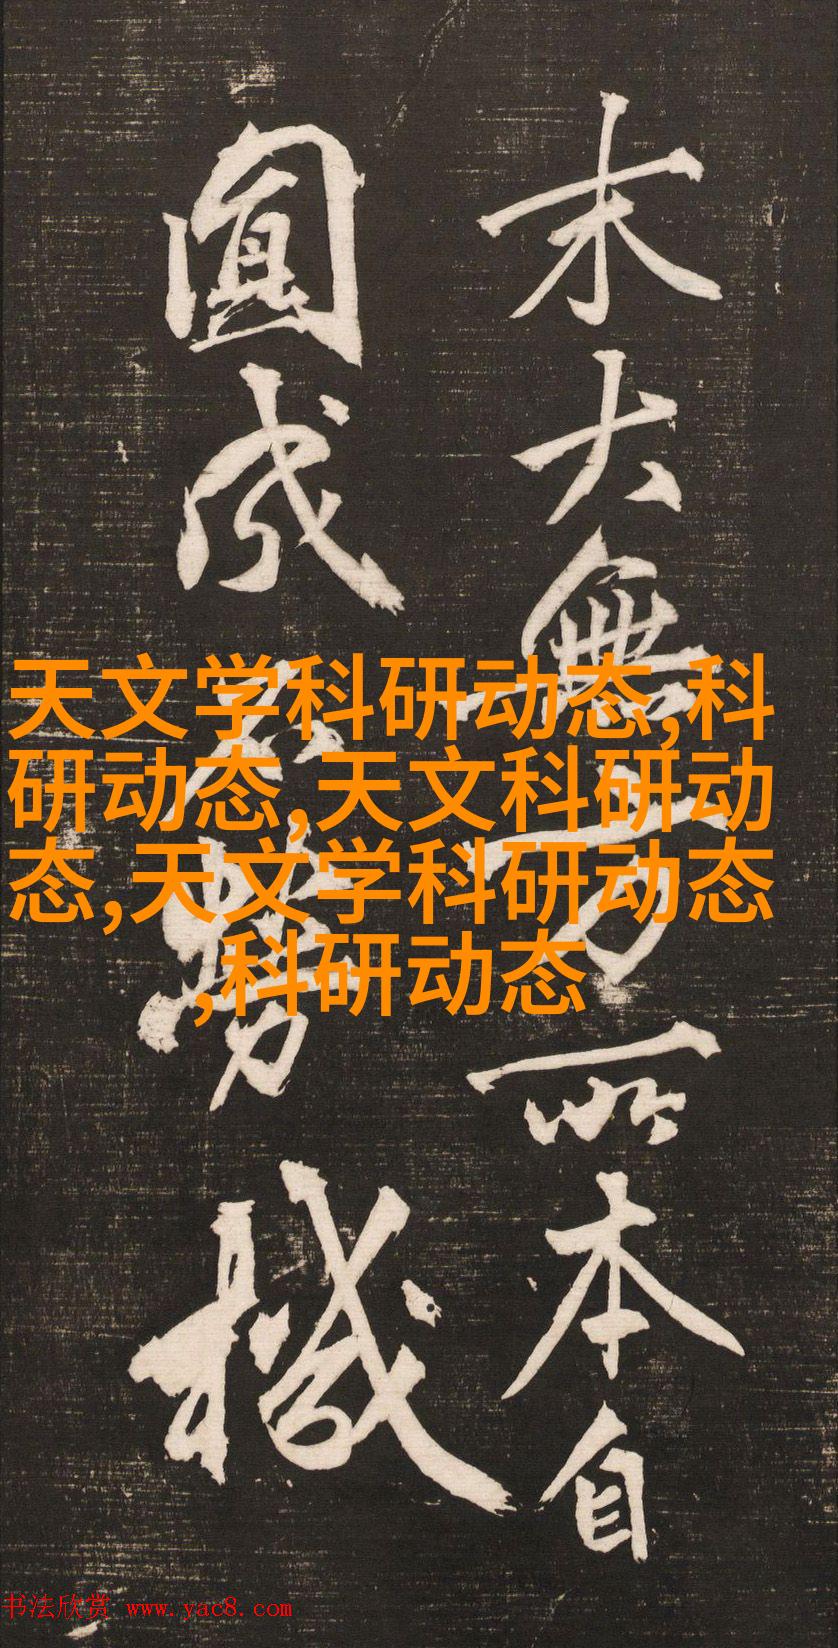 木大無方所本自
圓成不勞機
天文学科研动态,科
研动态,天文科研动
态,天文学科研动态
,科研动态
书法欣赏 www.yac8.com